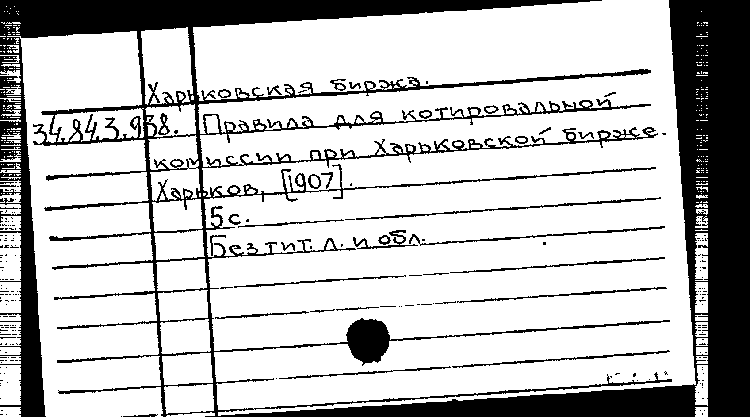 Харьковская биржа.
34.843.938. Правила для котировальной
комиссии при Харьковской бирже.
Харьков, [1907].
5 с.
Без тит. л. и обл.